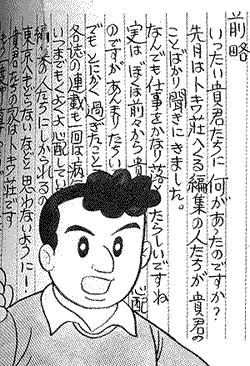 前略
いったい貴君たちに何があったのですか?
先月はトキワ荘へくる編集の人たちが貴君の
ことばかり聞きにきました。
なんでも仕事をかなり落 たらしいですね
実はぼくは前々から貴 心配
のですがあんまりたらい
でもとにかく過ぎたこと
各誌の連載も一回は病
いつまでもくよくよ心配してい
編集の人たちにしかられるの
東京へもどらないなどと思わないように!
貴君たちの トキワ荘です